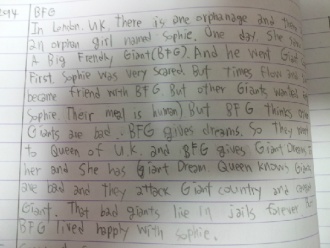 2014 BFG
In London. U.K, there is one orphanage and there
an orphan girl named Sophie. One day She saw
A Big Friendly Giant(BFG). And he went Giant
First, Sophie was very scared. But times flow and
became friend with BFG. But other Giants wanted
Sophie. Their meal is human! But BFG thinks other
Giants are bad. BFG gives dreams. So They went
to Queen of U.K. and BFG gives Giant Dream to
her and She has Giant Dream. Queen knows Giants
are bad and they attack Giant country and
Giant. That bad giants live in jails forever
BFG lived happly with Sophie.